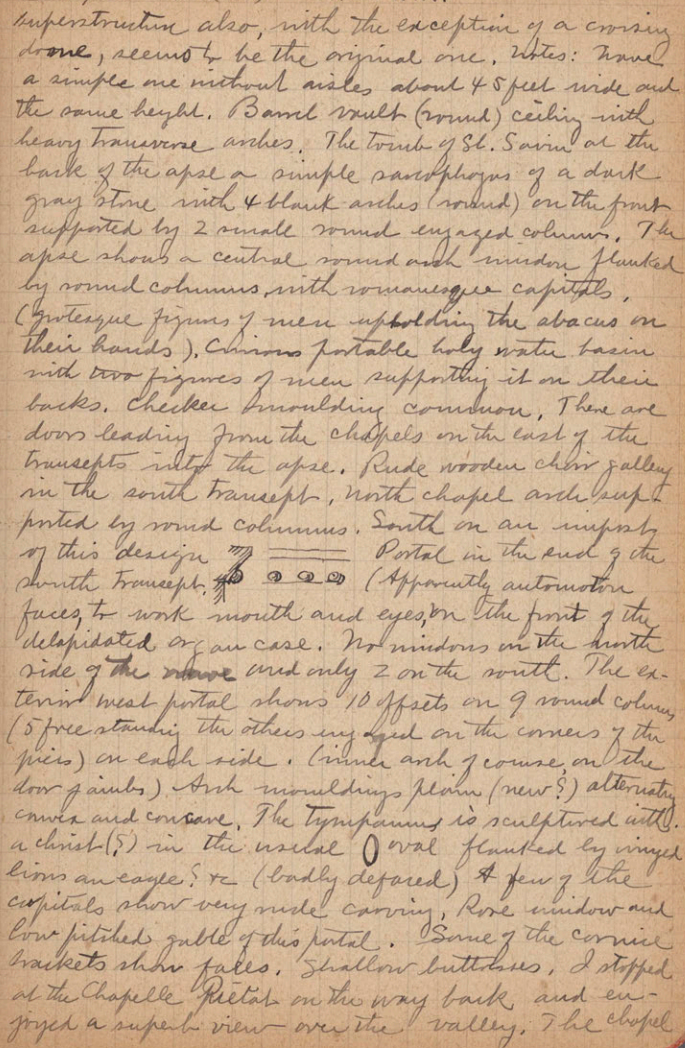 superstructure also, with the exception of a crossing
dome, seems to be the original one. Notes: Nave
a simple one without aisles about 45 feet wide and
the same height. Barrel vault (round) ceiling with
heavy transverse arches. The tomb of St. Savin at the
back of the apse a simple sarcophagus of a dark
gray stone with 4 blank arches (round) on the front
supported by 2 small round engaged columns. The
apse shows a central round arch window flanked
by round columns, with romanesque capitals,
(grotesque figures of men upholding the abacus on
their hands). Curious portable holy water basin
with two figures of men supporting it on their
backs. Checker moulding common. There are
doors leading from the chapels on the east of the
transepts into the apse. Rude wooden choir gallery
in the south transept. North chapel arch sup-
ported by round columns. South on an impost
of this design Portal in the end of the
south transept. (Apparently automaton
faces, to work mouth and eyes, on the front of the
delapidated organ case. No windows on the north
side of the nave and only 2 on the south. The ex-
terior west portal shows 10 offsets on 9 round columns
(5 free standing the others engaged on the corners of the
piers) on each side. (inner arch of course, on the
door jambs) Arch mouldings plain (new?) alternately
convex and concave. The tympanum is sculptured with
a christ (?) in the usual oval flanked by winged
lions an eagle? &c (badly defaced) A few of the
capitals show very rude carving. Rose window and
low pitched gable of this portal. Some of the cornice
brackets show faces. Shallow buttresses. I stopped
at the Chapelle Pietat on the way back and en-
joyed a superb view over the valley. The chapel